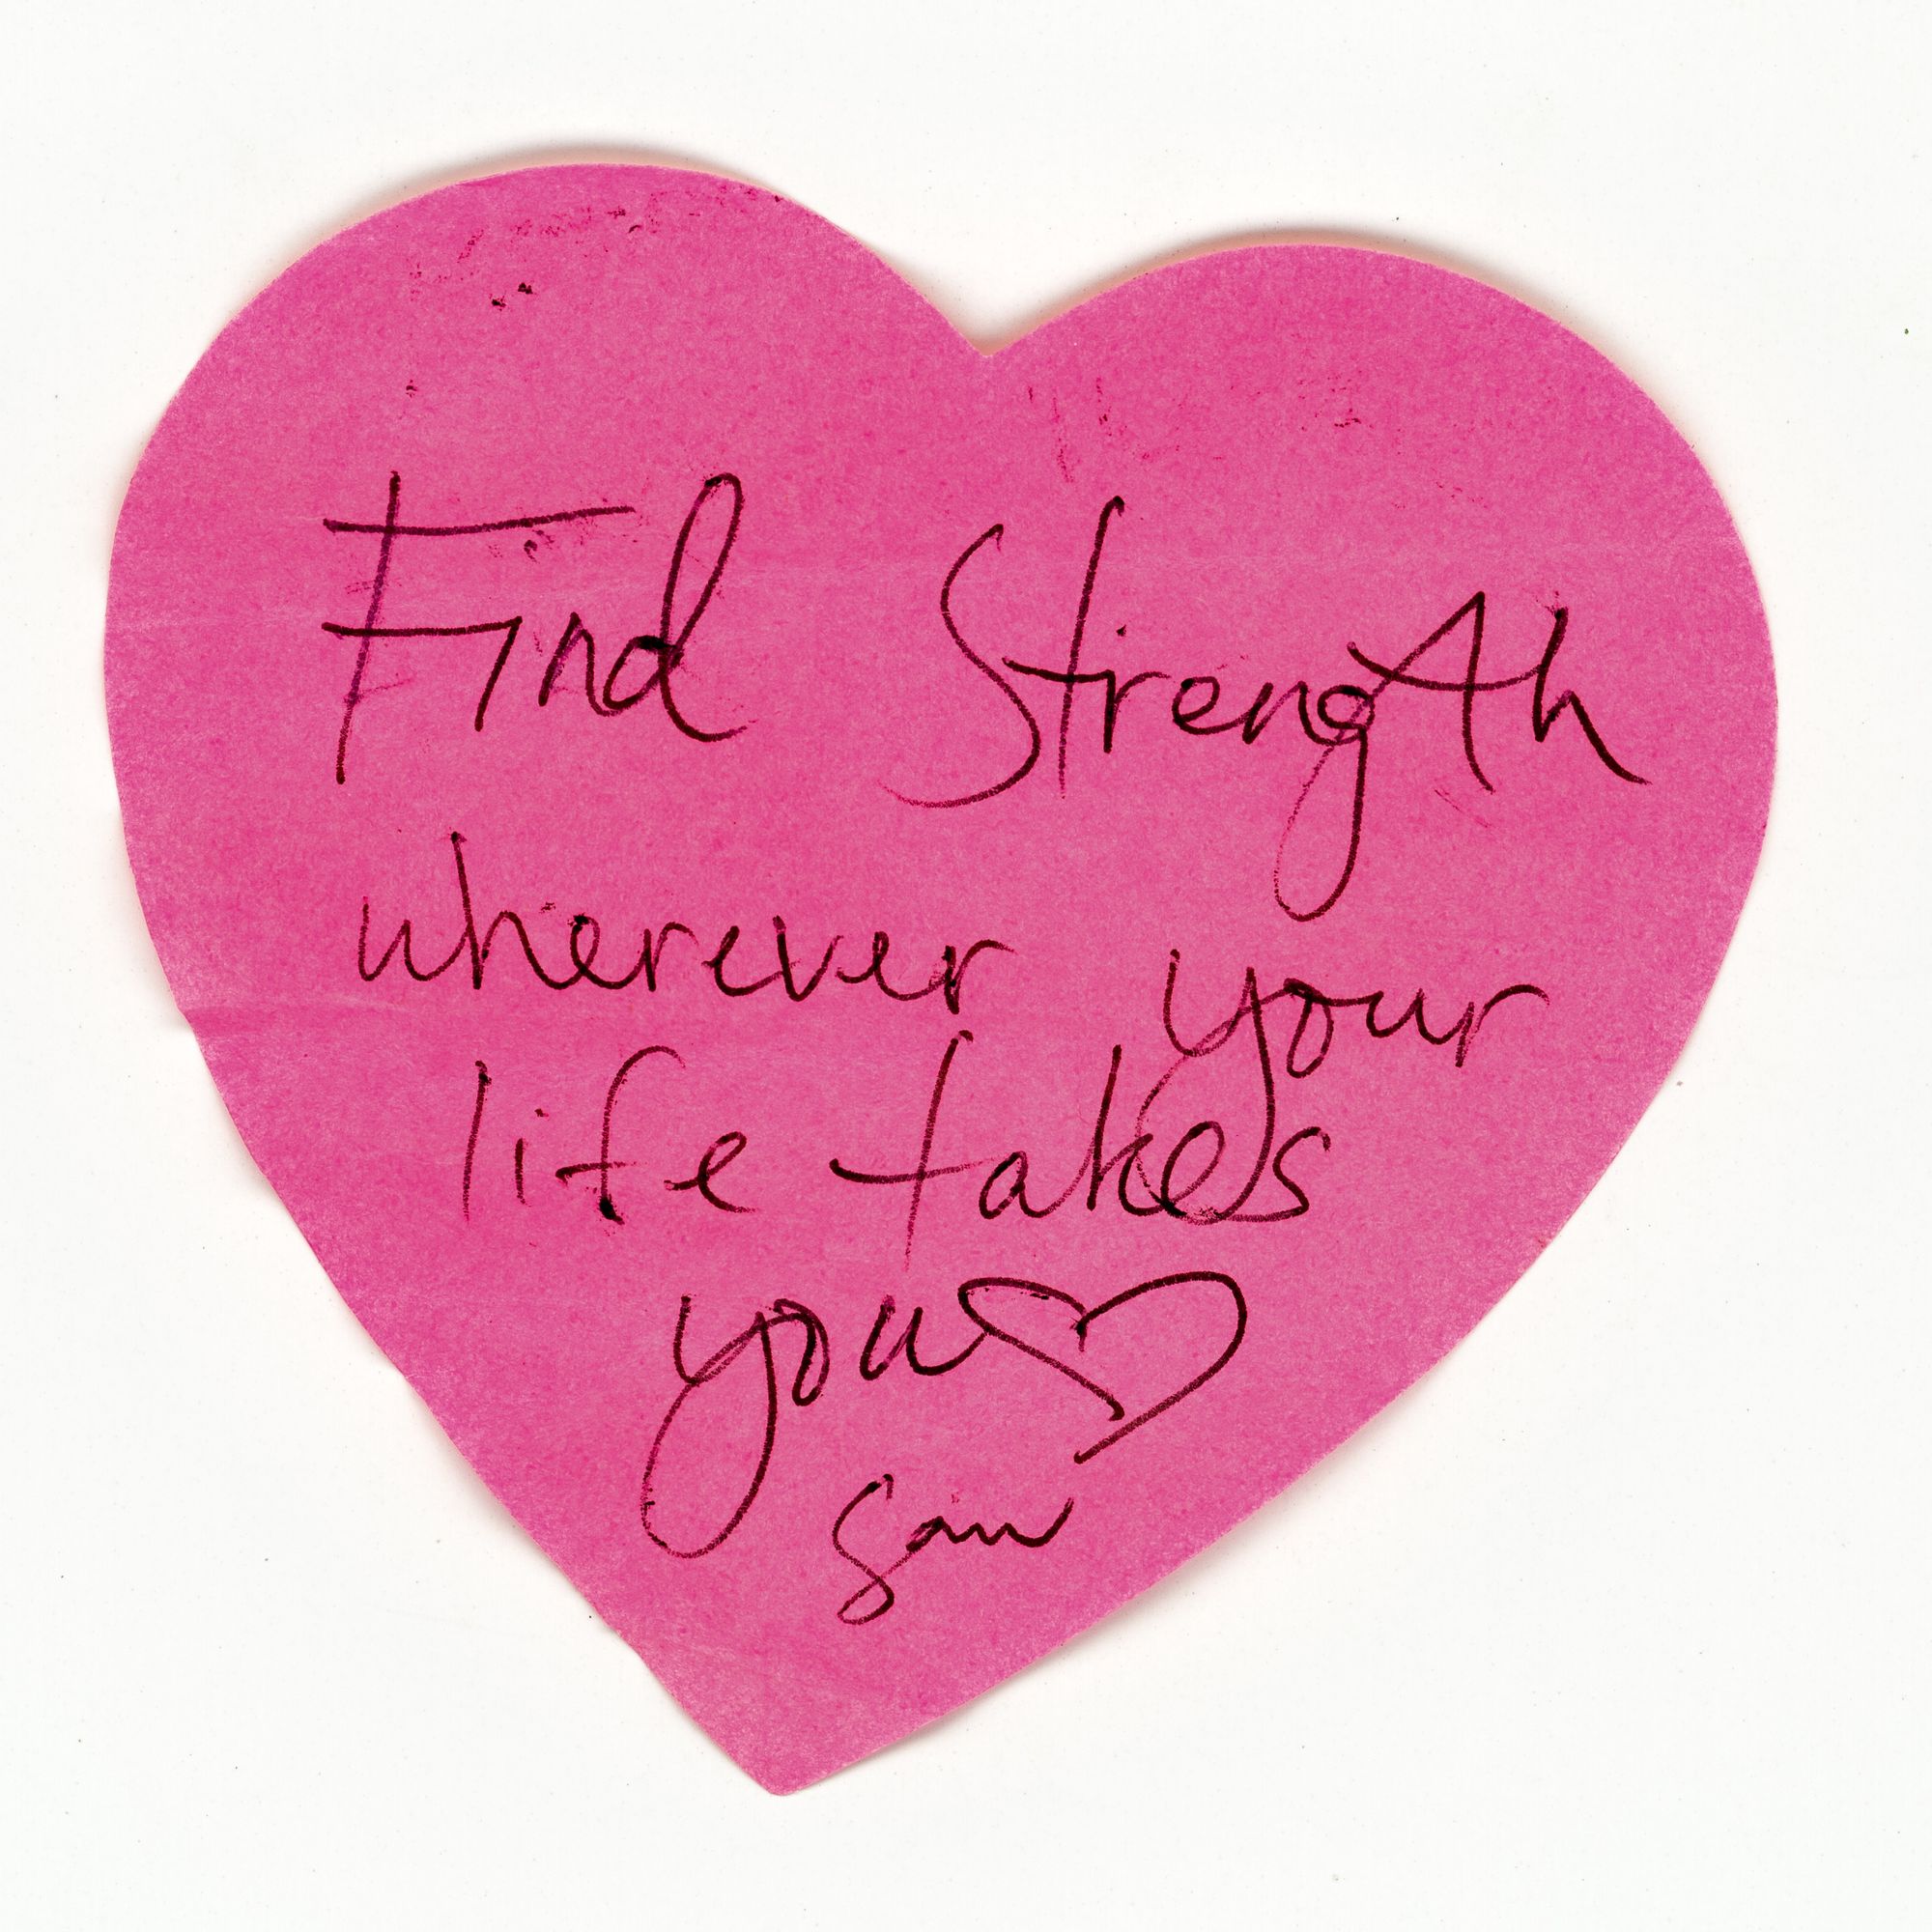 Find Strength
wherever your
life takes
you♡